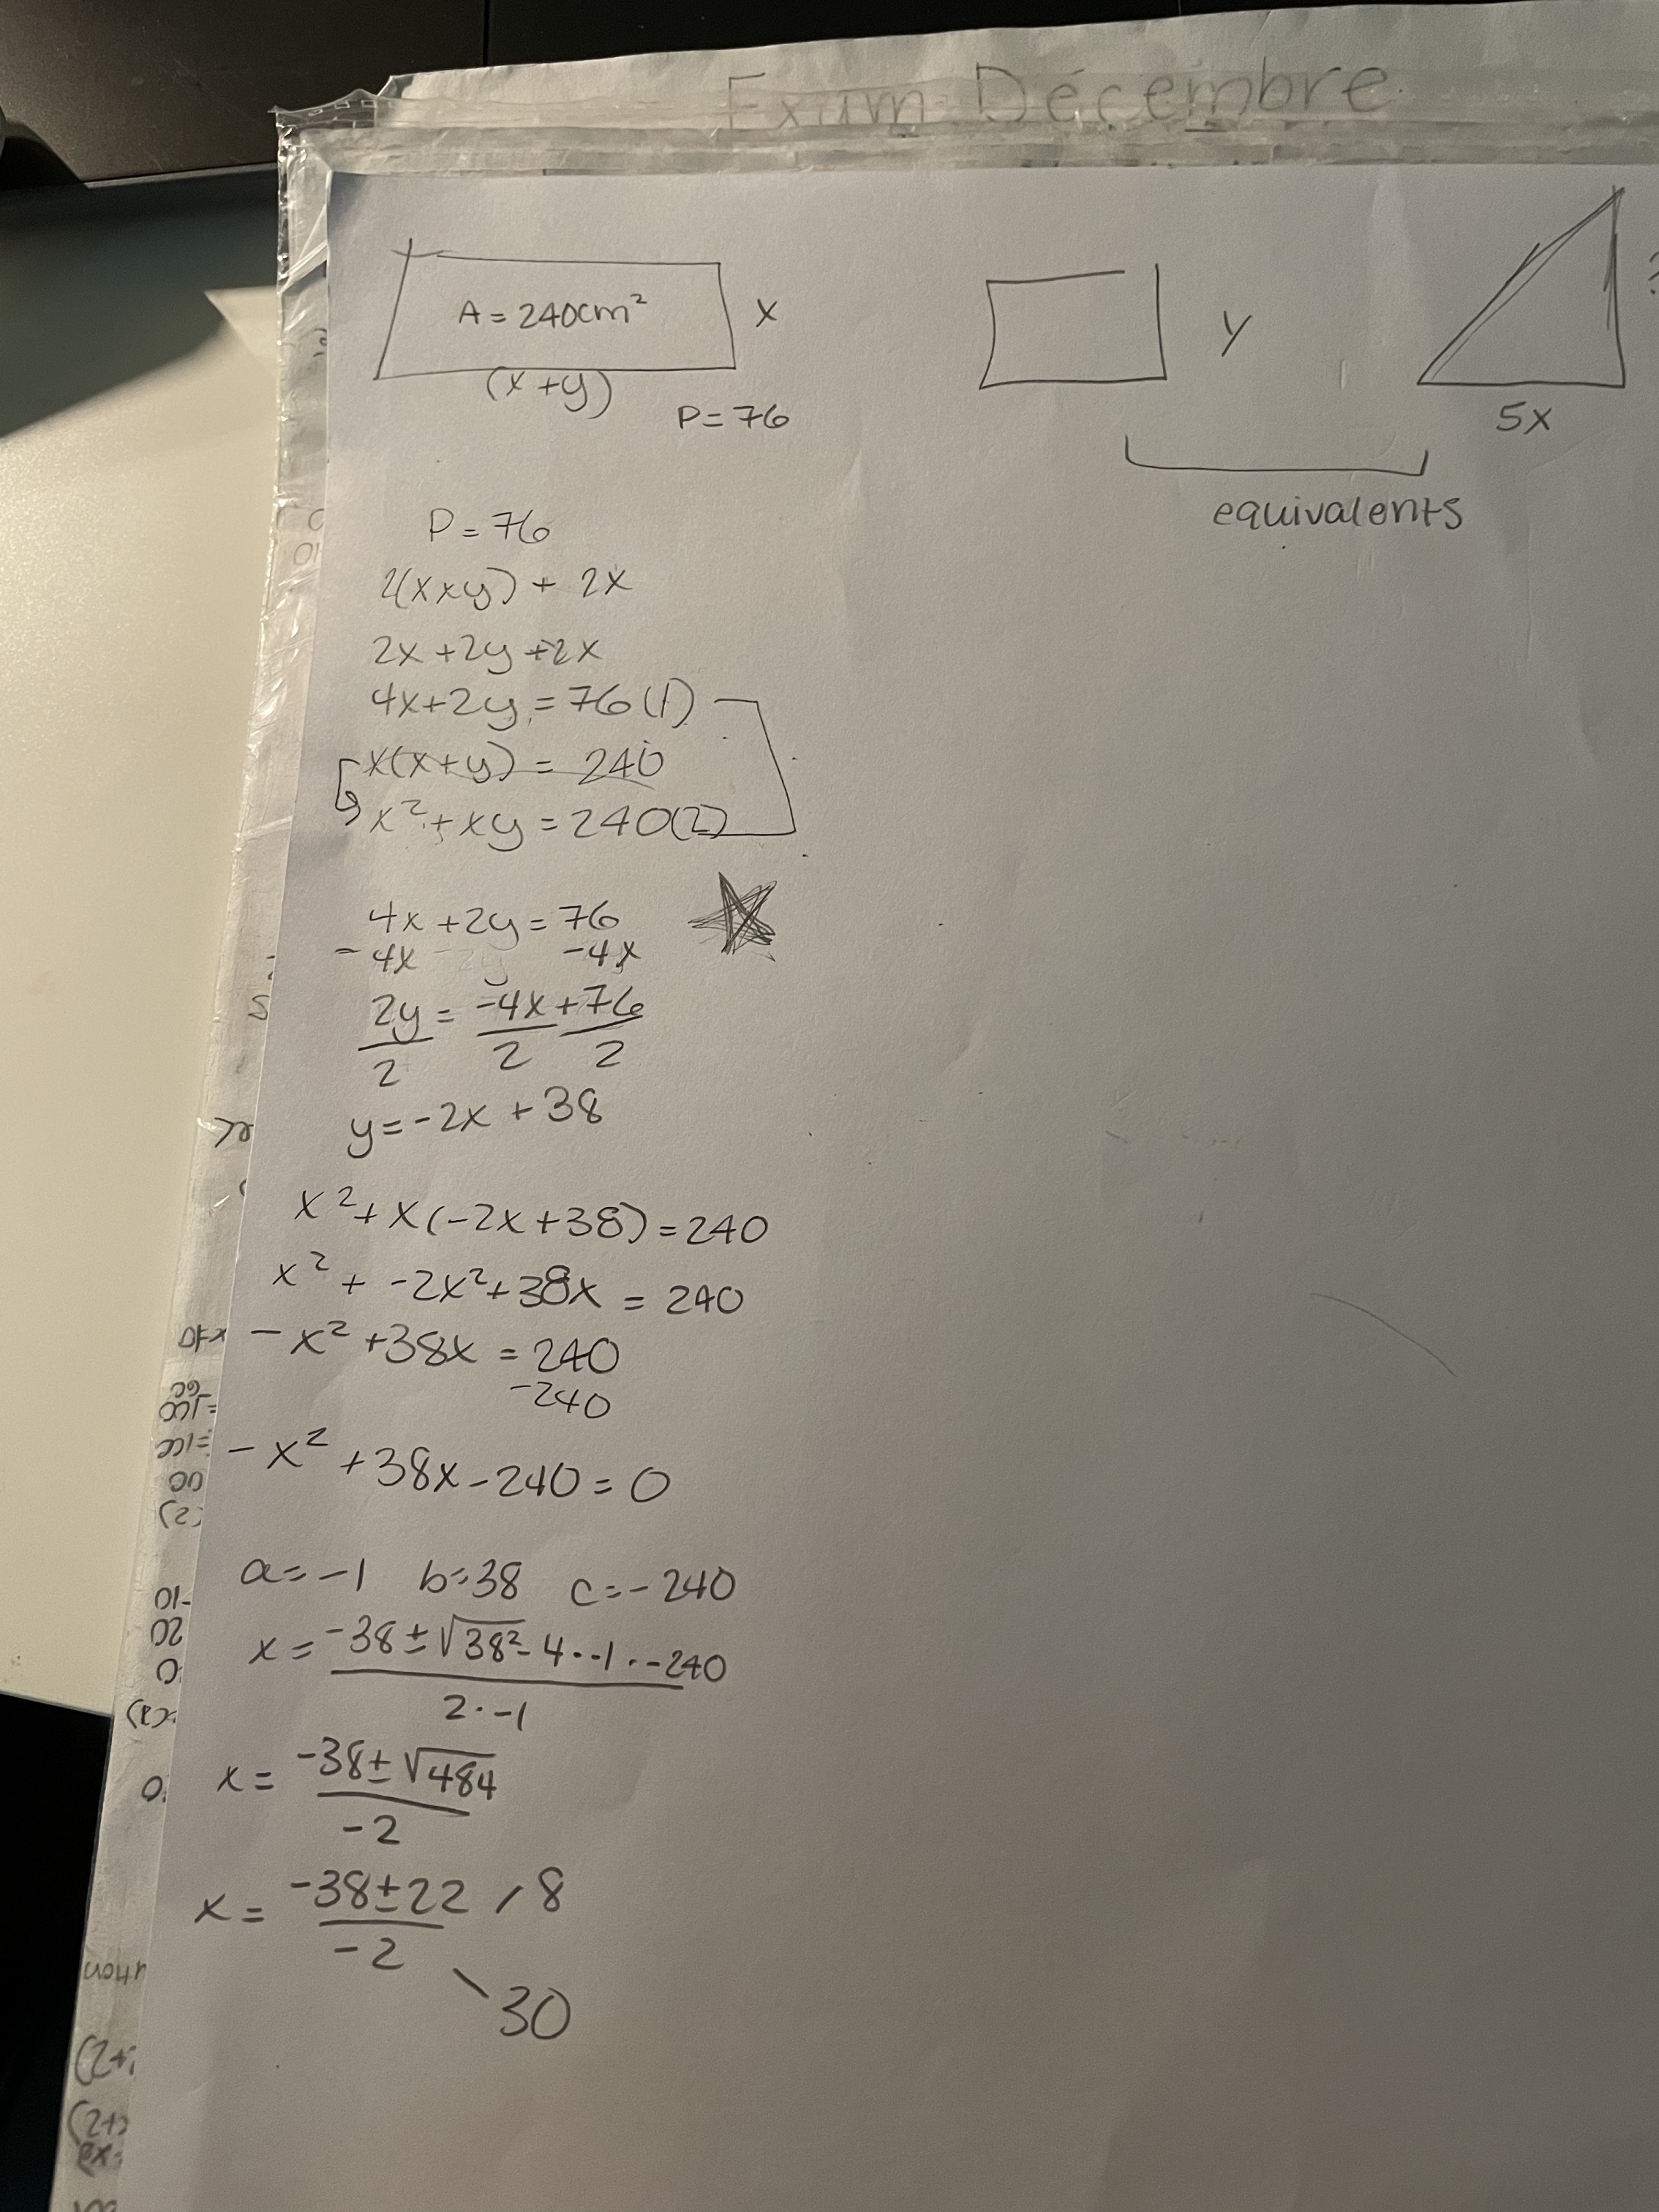 Exam Décembre
A = 240cm²
x
(x+y)
P=76
y
?
5x
equivalents
P=76
2(x×y) + 2x
2x+2y+2x
4x+2y=76(1)
x(x+y) = 240
x²+xy=240(2)
4x+2y=76
-4x -2y -4x
2y = -4x+76
2 2 2
y=-2x+38
x²+x(-2x+38)=240
x²+-2x²+38x=240
-x²+38x=240
-240
-x²+38x-240=0
a=-1 b=38 c=-240
x=-38±√38²-4·-1·-240
2·-1
x=-38±√484
-2
x=-38±22 8
-2
30